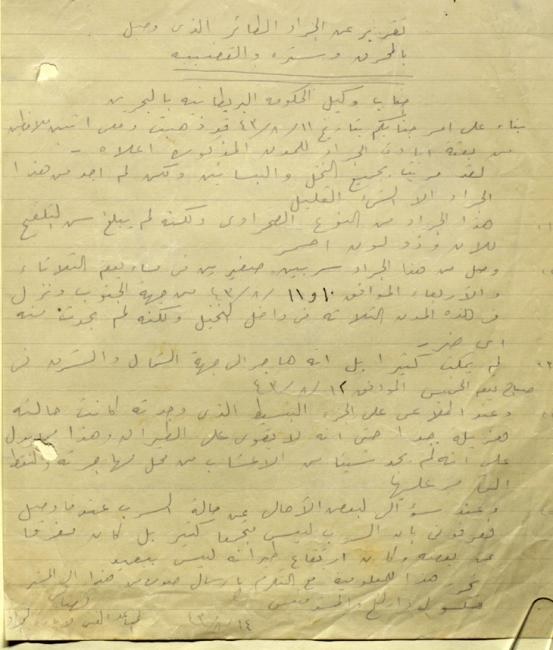 تقرير عن الجراد الطائر الذى وصل
بالمحرق وستره والقضيبيه
جناب وكيل الحكومه البريطانيه بالبحرين
بناء على امر جنابكم بتاريخ ٤٣/٨/١١ قد ذهبت ومعى اثنين ملاحظين
من بعثة ابادة الجراد للمدن المذكوره اعلاه -
لقد مريت بجميع النخل والبساتين ولكن لم اجد من هذا
الجراد الا الشئ القليل
هذا الجراد من النوع الصحراوى ولكنه لم يبلغ سن التلقيح
للان وذو لون احمر
وصل من هذا الجراد سربين صغيرين فى مساء يوم الثلاثاء
والأربعاء الموافق ١٠ و ١١ /٤٣/٨ من جهة الجنوب ونزل
فى هذه المدن الثلاثه فى داخل النخيل ولكنه لم يحدث منه
اى ضرر -
لم يمكث كثيرا بل انه هاجر الى جهة الشمال والشرق فى
صباح يوم الخميس الموافق ٤٣/٨/١٢
وعند اطلاعى على الجزء البسيط الذى وجدته كانت حالته
هزيله جدا حتى انه لا يقوى على الطيران وهذا يدل
على انه لم يجد شيئا من الاعشاب من محل مهاجرته والنقط
التى مر عليها
وعند سؤالى لبعض الأهالى عن حالة السرب عندما وصل
فعرفونى بان السرب ليس متجمعا كثير بل كان متفرقا
عن بعضه وكان ارتفاع طيرانه ليس ببعيد
هذا للمعلوميه مع التكرم بارسال صوره من هذا الى المستر
٤٣/٨/١٤